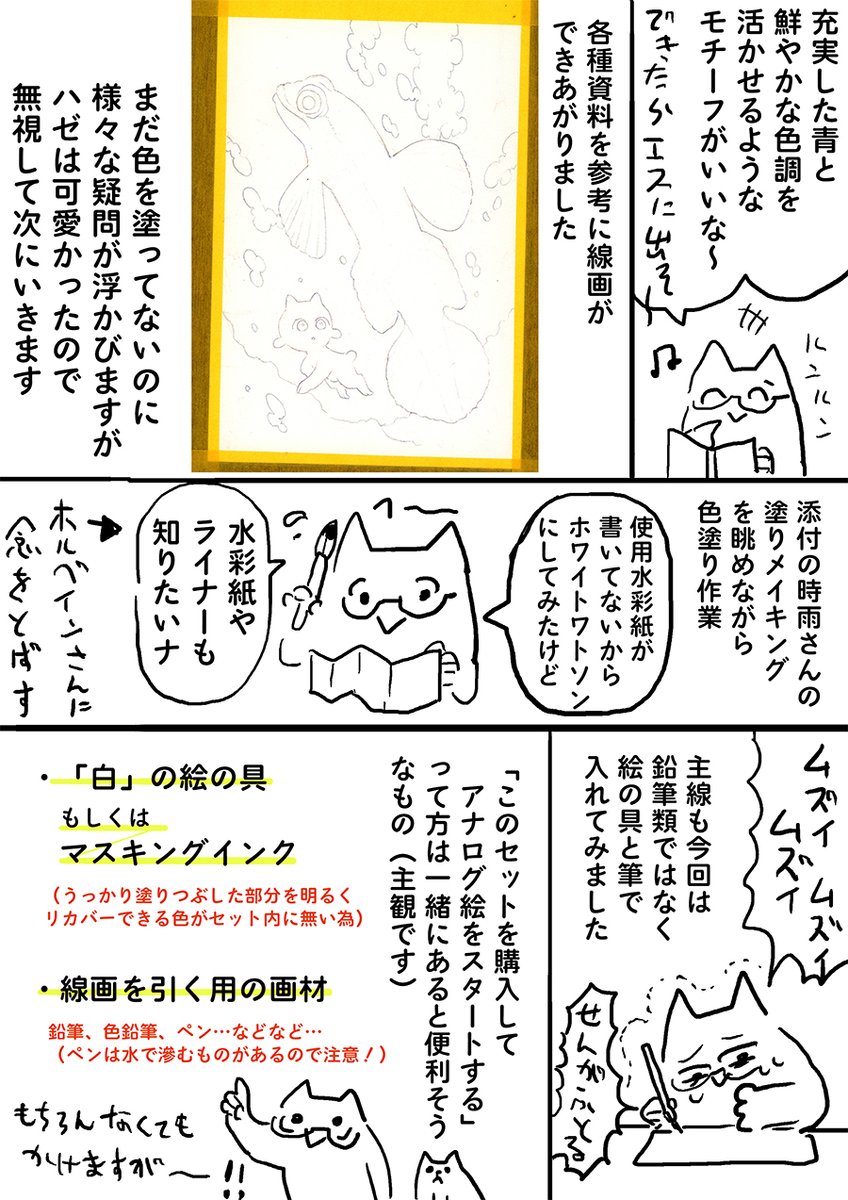 充実した青と
鮮やかな色調を
活かせるような
モチーフがいいな〜
できたらエスに出そ
ルンルン
各種資料を参考に線画が
できあがりました
まだ色を塗ってないのに
様々な疑問が浮かびますが
ハゼは可愛かったので
無視して次にいきます
添付の時雨さんの
塗りメイキング
を眺めながら
色塗り作業
使用水彩紙が
書いてないから
ホワイトワトソン
にしてみたけど
水彩紙や
ライナーも
知りたいナ
ホルベインさんに
念をとばす
ムズイ ムズイ
ムズイ
主線も今回は
鉛筆類ではなく
絵の具と筆で
入れてみました
せんがふとる
「このセットを購入して
アナログ絵をスタートする」
って方は一緒にあると便利そう
なもの（主観です）
・「白」の絵の具
もしくは
マスキングインク
（うっかり塗りつぶした部分を明るく
リカバーできる色がセット内に無い為）
・線画を引く用の画材
鉛筆、色鉛筆、ペン…などなど…
（ペンは水で滲むものがあるので注意！）
もちろんなくても
かけますが〜
!!